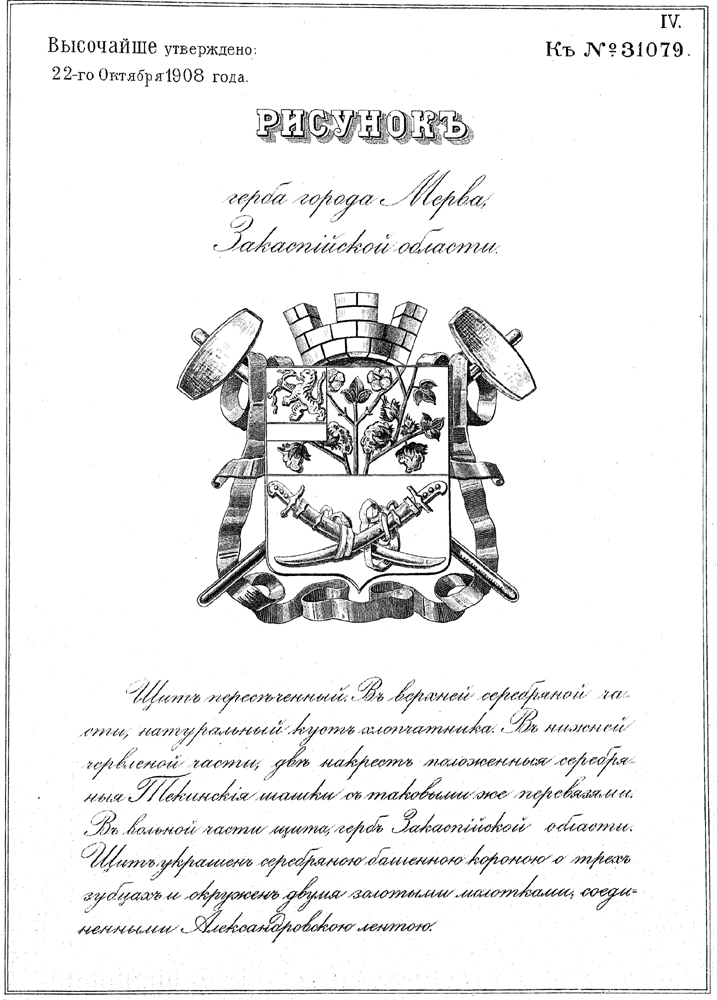 IV.
Высочайше утверждено:
Къ № 31079.
22-го Октября 1908 года.
РИСУНОКЪ
герба города Мерва,
Закаспійской области.
Щитъ пересѣченный. Въ верхней серебряной ча-
сти, натуральный кустъ хлопчатника. Въ нижней
червленой части, двѣ накрестъ положенныя серебря-
ныя Текинскія шашки съ таковыми же перевязями.
Въ вольной части щита, гербъ Закаспійской области.
Щитъ украшенъ серебряною башенною короною о трехъ
зубцахъ и окруженъ двумя золотыми молотками, соеди-
ненными Александровскою лентою.